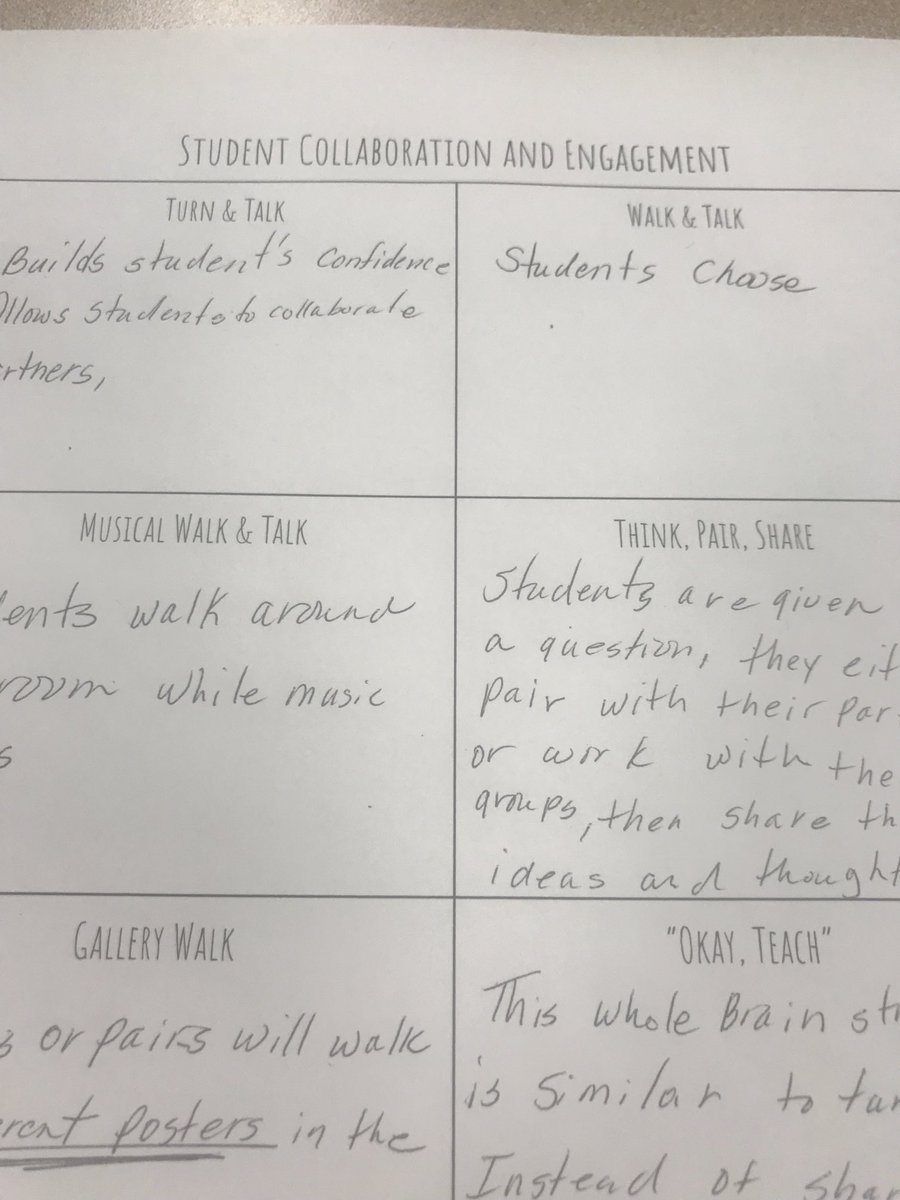 STUDENT COLLABORATION AND ENGAGEMENT
TURN & TALK
Builds student's confidence
Allows students to collaborate
WALK & TALK
Students Choose
MUSICAL WALK & TALK
walk around
room while music
THINK, PAIR, SHARE
Students are given
a question, they
pair with their
or work with the
groups, then share
ideas and
GALLERY WALK
or pairs will walk
posters in the
"OKAY, TEACH"
This whole Brain
is similar to
Instead of